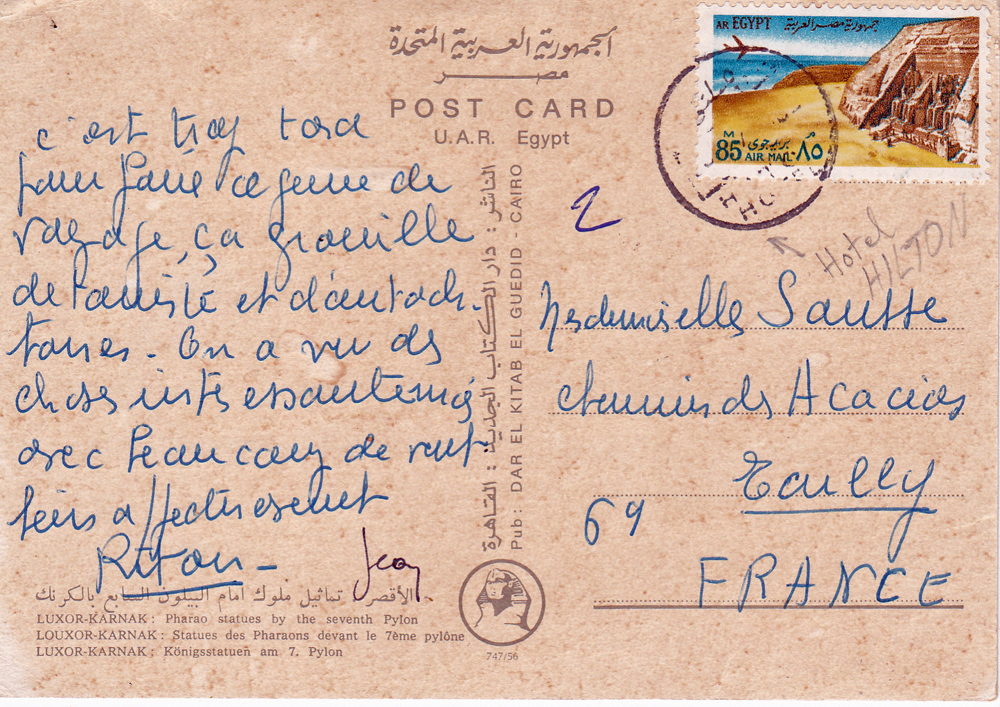 الجمهورية العربية المتحدة
مصر
POST CARD
U.A.R. Egypt
AR EGYPT جمهورية مصر العربية
M 85 بريد جوى ٨٥ م
AIR MAIL
c'est trop tard
pour faire ce genre de
voyage, ça grouille
de touriste et d'autoch-
tones. On a vu des
choses intéressantes mais
avec beaucoup de
affectueusement
Riton -
Jean
2
Hotel
HILTON
Mesdemoiselles Sausse
chemin des Acacias
69
FRANCE
الناشر : دار الكتاب الجديد : القاهرة
Pub: DAR EL KITAB EL GUEDID - CAIRO
الأقصر : تماثيل ملوك أمام البيلون السابع بالكرنك
LUXOR-KARNAK : Pharao statues by the seventh Pylon
LOUXOR-KARNAK : Statues des Pharaons devant le 7ème pylône
LUXOR-KARNAK : Königsstatuen am 7. Pylon
747/56